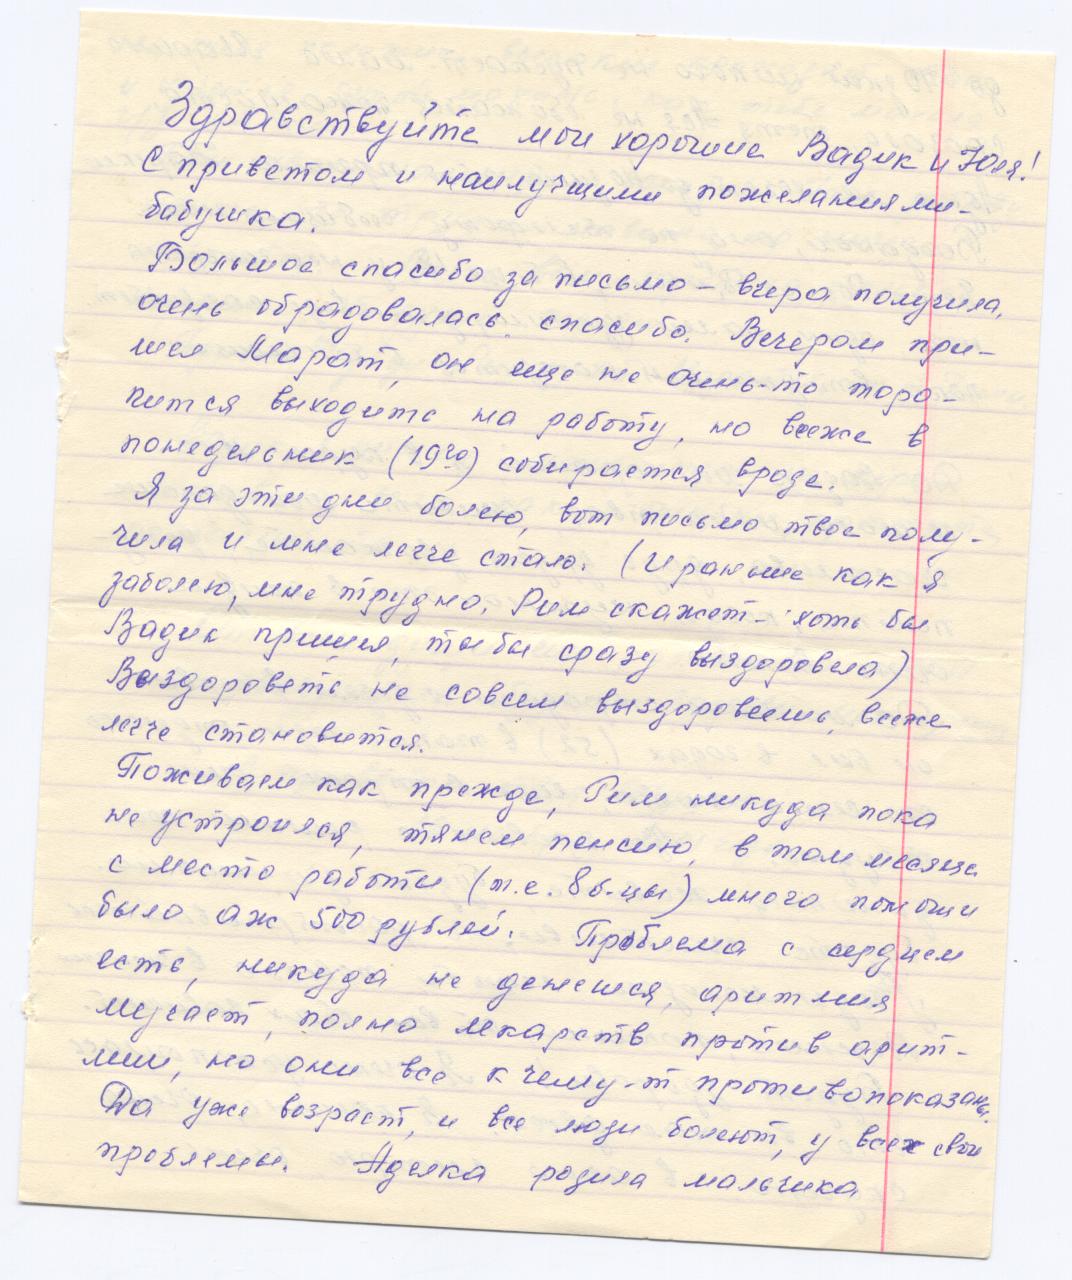 Здравствуйте мои хорошие Вадик и Юля!
С приветом и наилучшими пожеланиями-
бабушка.
Большое спасибо за письмо – вчера получила,
очень обрадовалась. спасибо. Вечером при-
шел Марат, он еще не очень-то торо-
пится выходить на работу, но всеже в
понедельник (19го) собирается вроде.
Я за эти дни болею, вот письмо твое полу-
чила и мне легче стало. (И раньше как я
заболею, мне трудно. Рим скажет – хоть бы
Вадик пришел, ты бы сразу выздоровела)
Выздороветь не совсем выздоровеешь, всеже
легче становится.
Поживаем как прежде, Рим никуда пока
не устроился, тянем пенсию, в том месяце
с место работы (т.е. б-цы) много помощи
было аж 500 рублей. Проблема с сердцем
есть, никуда не денешся, аритмия
мучает, полно лекарств против арит-
мии, но они все к чему-т противопоказаны.
Да уже возраст, и все люди болеют, у всех свои
проблемы. Аделка родила мальчика